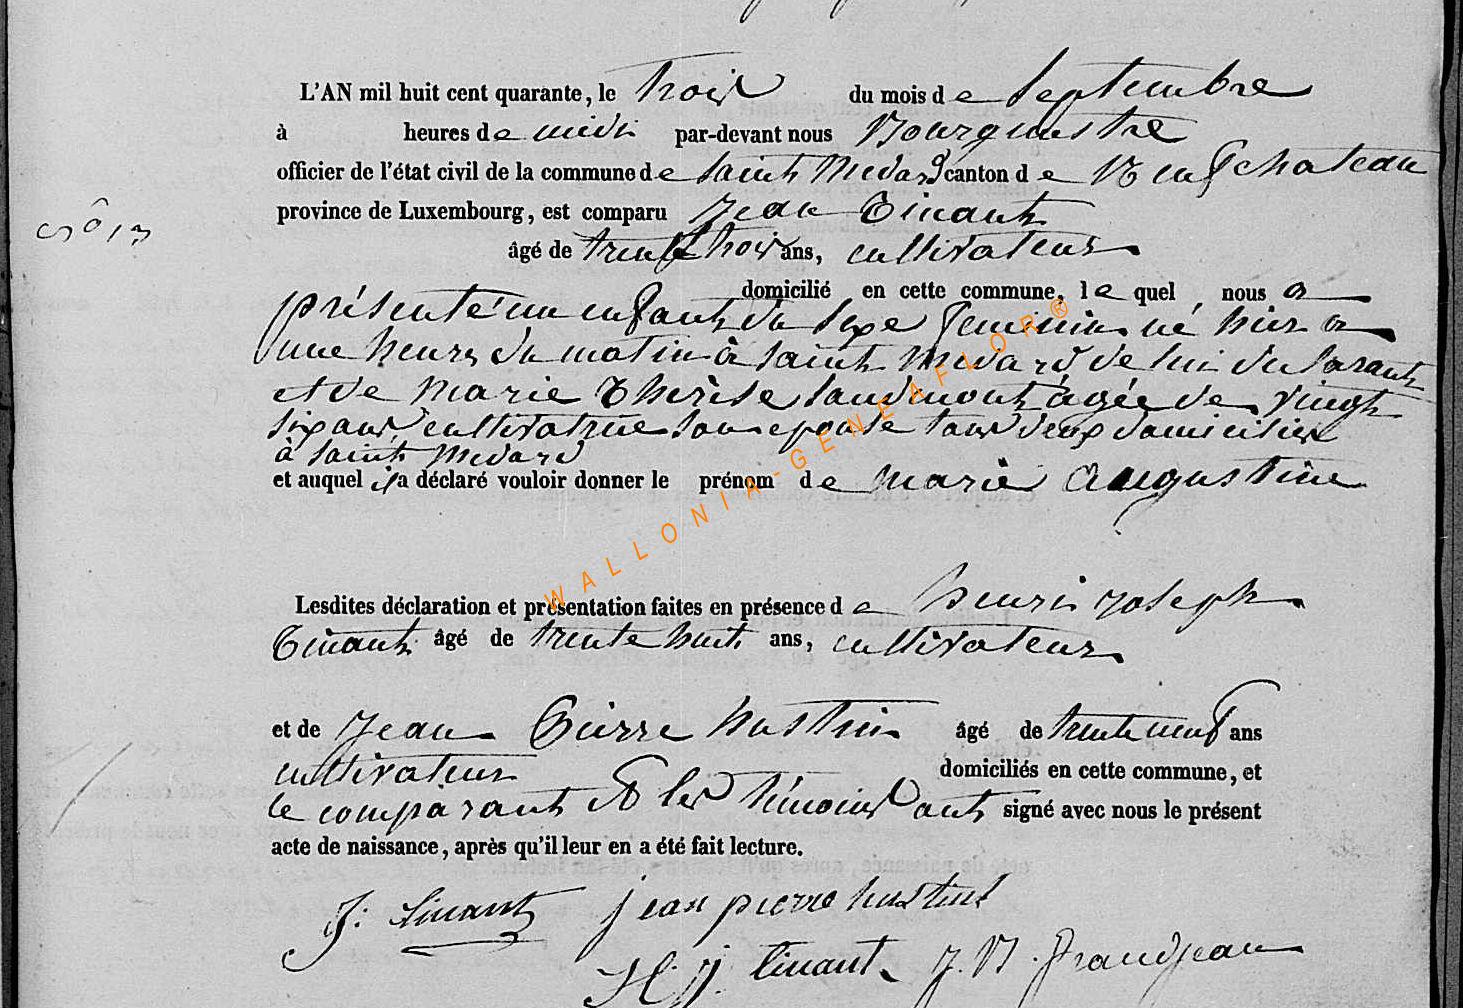 L'AN mil huit cent quarante, le trois du mois de Septembre
à heures de midi par-devant nous Bourgmestre
officier de l'état civil de la commune de Saint Medard canton de Neufchateau
province de Luxembourg, est comparu Jean Tinant
âgé de trente trois ans, cultivateur
domicilié en cette commune, le quel, nous a
présenté un enfant du sexe feminin né hier a
une heure du matin à Saint Medard de lui du larant
et de Marie Thérèse âgée de vingt
six ans cultivatrice son epouse tous deux domiciliés
à Saint Medard
et auquel il a déclaré vouloir donner le prénom de Marie Augustine
Lesdites déclaration et présentation faites en présence de henri Joseph
Tinant âgé de trente huit ans, cultivateur
et de Jean Pierre hustin âgé de trente neuf ans
cultivateur domiciliés en cette commune, et
le comparant et les témoins ont signé avec nous le présent
acte de naissance, après qu'il leur en a été fait lecture.
J: Tinant jean pierre hustin
H. j. tinant J. N. Grandjean
WALLONIA-GENEAFLOR®